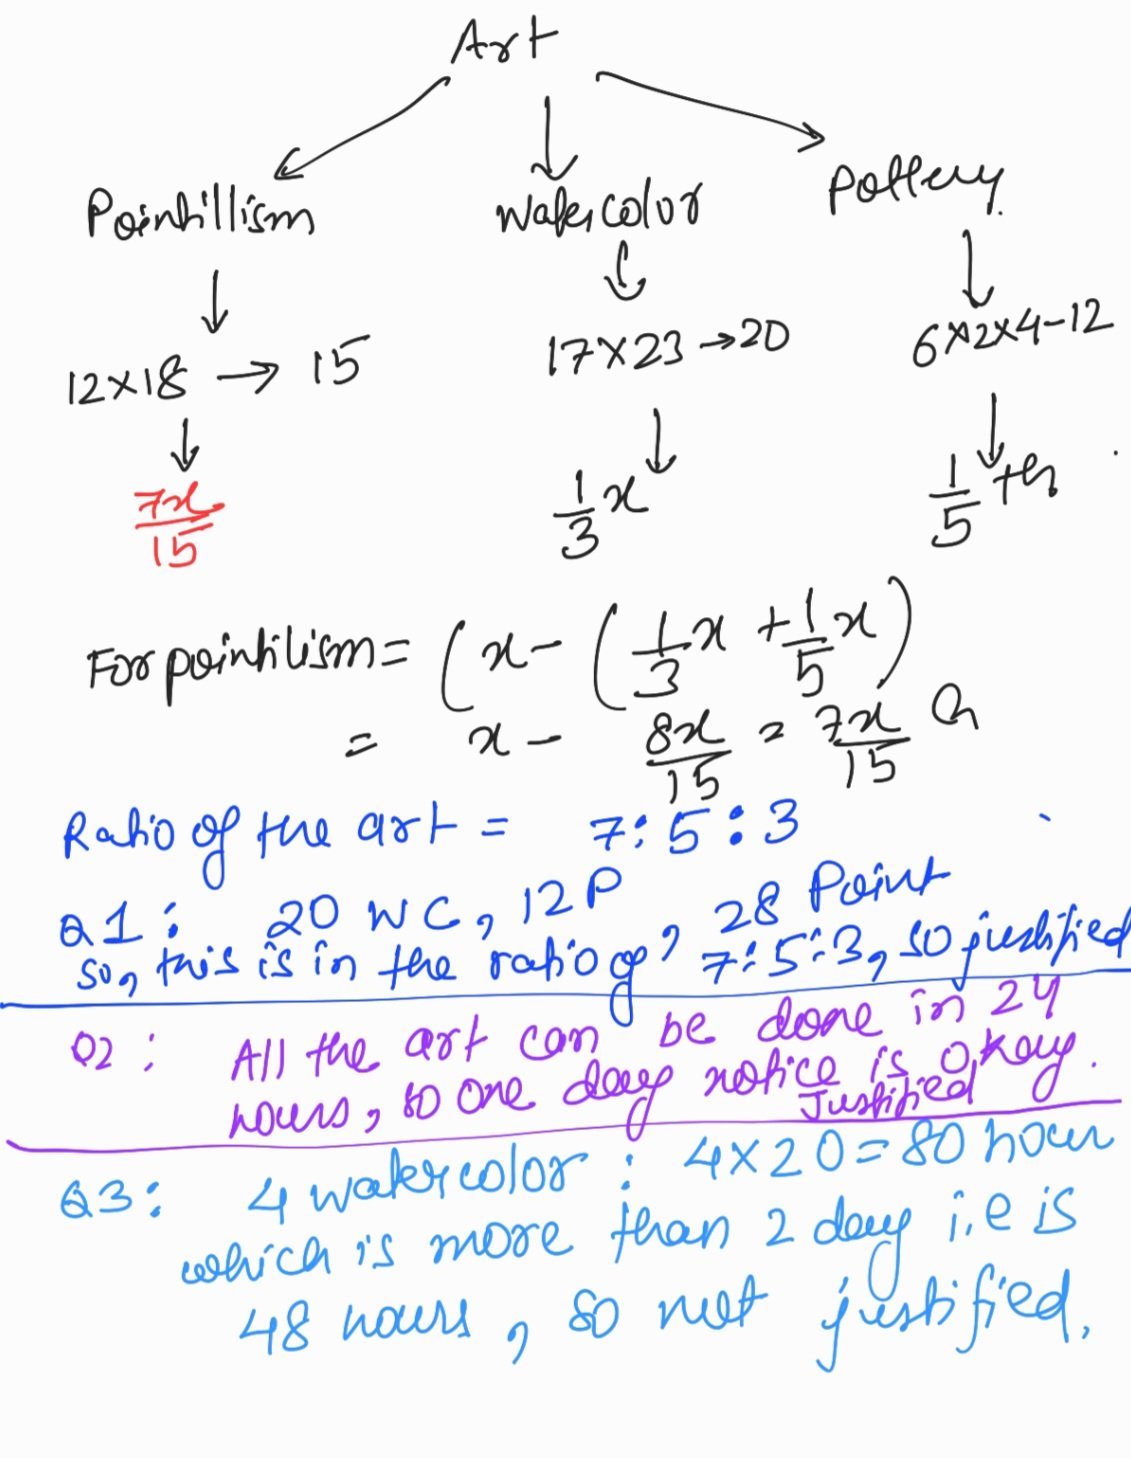 Art
Pointillism Watercolor Pottery
12×18 → 15 17×23 → 20 6×2×4-12
7x/15 1/3 x 1/5 th
For pointilism = (x - (1/3 x + 1/5 x)
= x - 8x/15 = 7x/15
Ratio of the art = 7:5:3
Q1: 20 WC, 12P, 28 Point
So, this is in the ratio of 7:5:3, so justified
Q2: All the art can be done in 24
hours, so one day notice is okay.
Justified
Q3: 4 watercolor: 4×20=80 hour
which is more than 2 day i.e is
48 hours, so not justified.